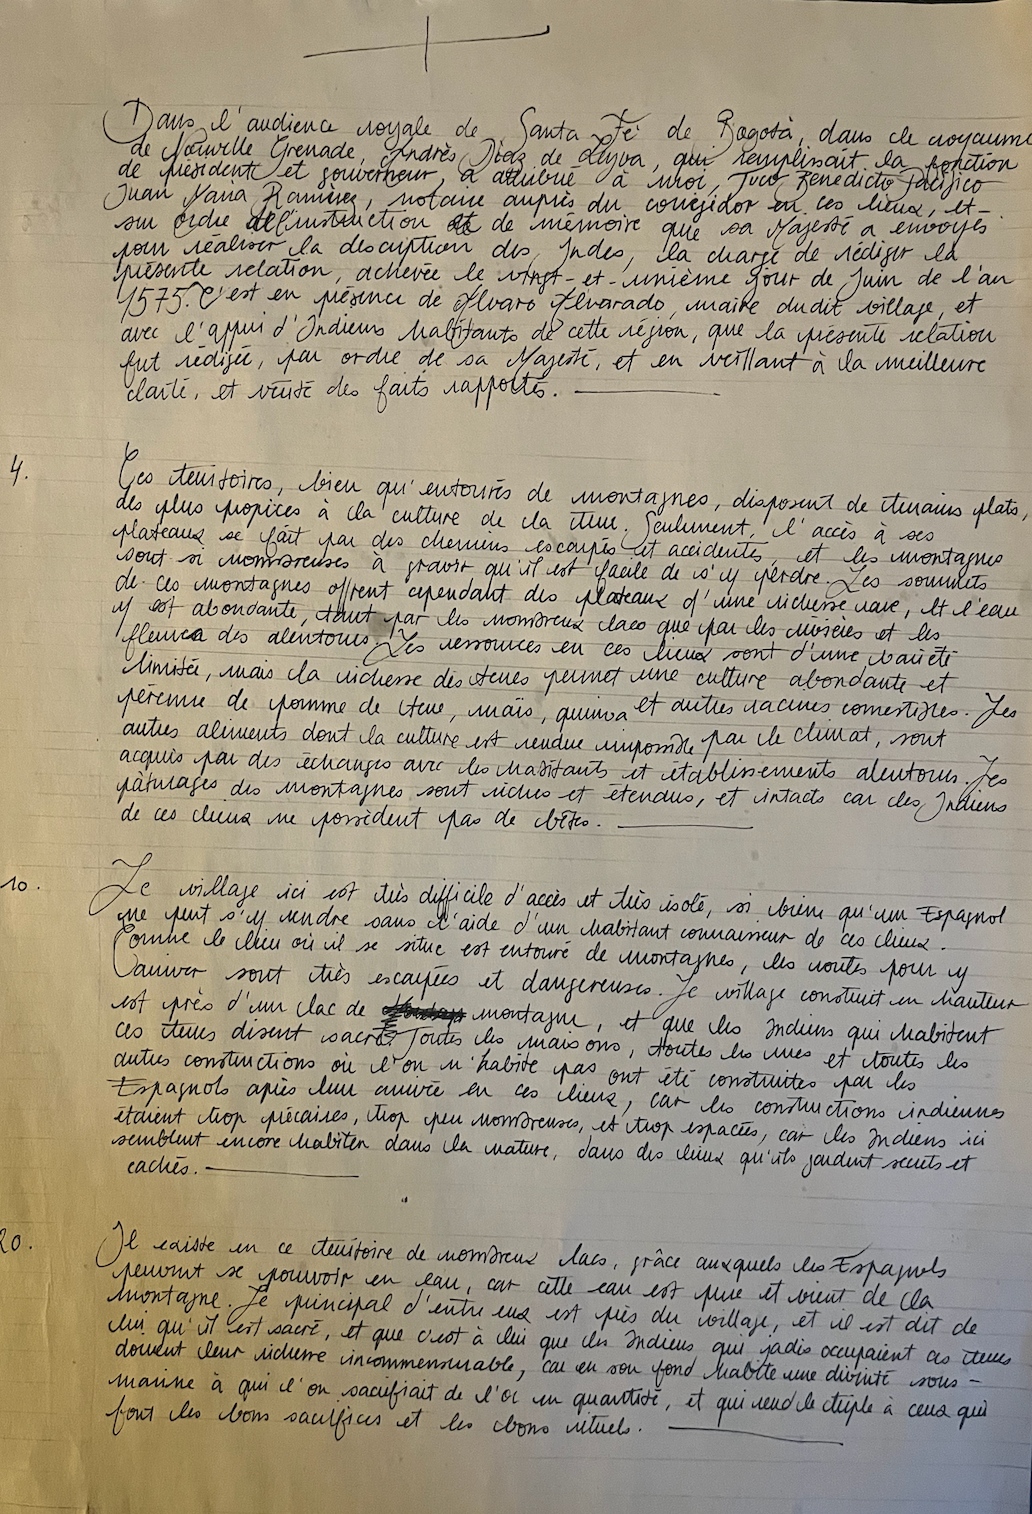 Dans l'audience royale de Santa Fé de Bogotá, dans le royaume
de Nouvelle Grenade, Andrès Diaz de Leyva, qui remplissait la fonction
de président et gouverneur, a attribué à moi, Tuco Benedicto Pacifico
Juan Maria Ramirez, notaire auprès du corregidor en ces lieux, et
sur ordre de l'instruction et de mémoire que sa Majesté a envoyés
pour réaliser la description des Indes, la charge de rédiger la
présente relation, achevée le vingt-et-unième jour de Juin de l'an
1575. C'est en présence de Alvaro Alvarado, maire dudit village, et
avec l'appui d'Indiens habitants de cette région, que la présente relation
fut rédigée, par ordre de sa Majesté, et en veillant à la meilleure
clarté, et vérité des faits rapportés.
4. Ces territoires, bien qu'entourés de montagnes, disposent de terrains plats,
des plus propices à la culture de la terre. Seulement, l'accès à ses
plateaux se fait par des chemins escarpés et accidentés, et les montagnes
sont si nombreuses à gravir qu'il est facile de s'y perdre. Les sommets
de ces montagnes offrent cependant des plateaux d'une richesse rare, et l'eau
y est abondante, tant par les nombreux lacs que par les rivières et les
fleuves des alentours. Les ressources en ces lieux sont d'une variété
limitée, mais la richesse des terres permet une culture abondante et
pérenne de pomme de terre, maïs, quinoa et autres racines comestibles. Les
autres aliments dont la culture est rendue impossible par le climat, sont
acquis par des échanges avec les habitants et établissements alentours. Les
pâturages des montagnes sont riches et étendus, et intacts car les Indiens
de ces lieux ne possèdent pas de bêtes.
10. Le village ici est très difficile d'accès et très isolé, si bien qu'un Espagnol
ne peut s'y rendre sans l'aide d'un habitant connaisseur de ces lieux.
Comme le lieu où il se situe est entouré de montagnes, les routes pour y
arriver sont très escarpées et dangereuses. Le village construit en hauteur
est près d'un lac de montagne, et que les Indiens qui habitent
ces terres disent sacré. Toutes les maisons, toutes les rues et toutes les
autres constructions où l'on n'habite pas ont été construites par les
Espagnols après leur arrivée en ces lieux, car les constructions indiennes
étaient trop précaires, trop peu nombreuses, et trop espacées, car les Indiens ici
semblent encore habiter dans la nature, dans des lieux qu'ils gardent secrets et
cachés.
20. Il existe en ce territoire de nombreux lacs, grâce auxquels les Espagnols
peuvent se pourvoir en eau, car cette eau est pure et vient de la
montagne. Le principal d'entre eux est près du village, et il est dit de
lui qu'il est sacré, et que c'est à lui que les Indiens qui jadis occupaient ces terres
doivent leur richesse incommensurable, car en son fond habite une divinité sous-
marine à qui l'on sacrifiait de l'or en quantité, et qui rend le triple à ceux qui
font les bons sacrifices et les bons rituels.